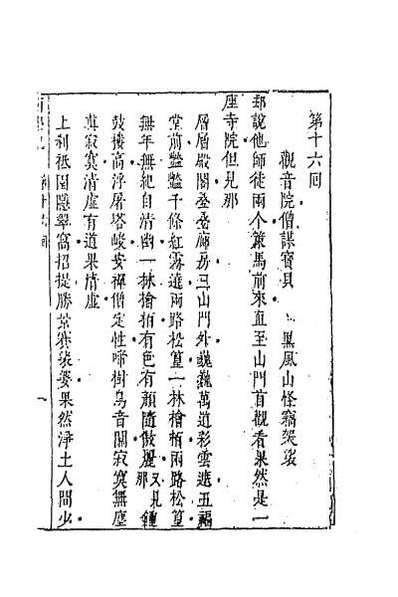 第十六回
觀音院僧謀寶貝　黑風山怪竊袈裟
却說他師徒兩个策馬前來直至山門首觀看果然是一
座寺院但見那
層層殿閣叠叠廊房三山門外巍巍萬道彩雲遮五福
堂前豔豔千條紅霧遶兩路松篁一林檜栢兩路松篁
無年無紀自清幽一林檜栢有色有顏隨傲麗又見那鐘
鼓樓高浮屠塔峻安禪僧定性啼樹鳥音閑寂寞無塵
真寂寞清虛有道果清虛
上刹祇園隱翠窩招提勝景賽娑婆果然淨土人間少